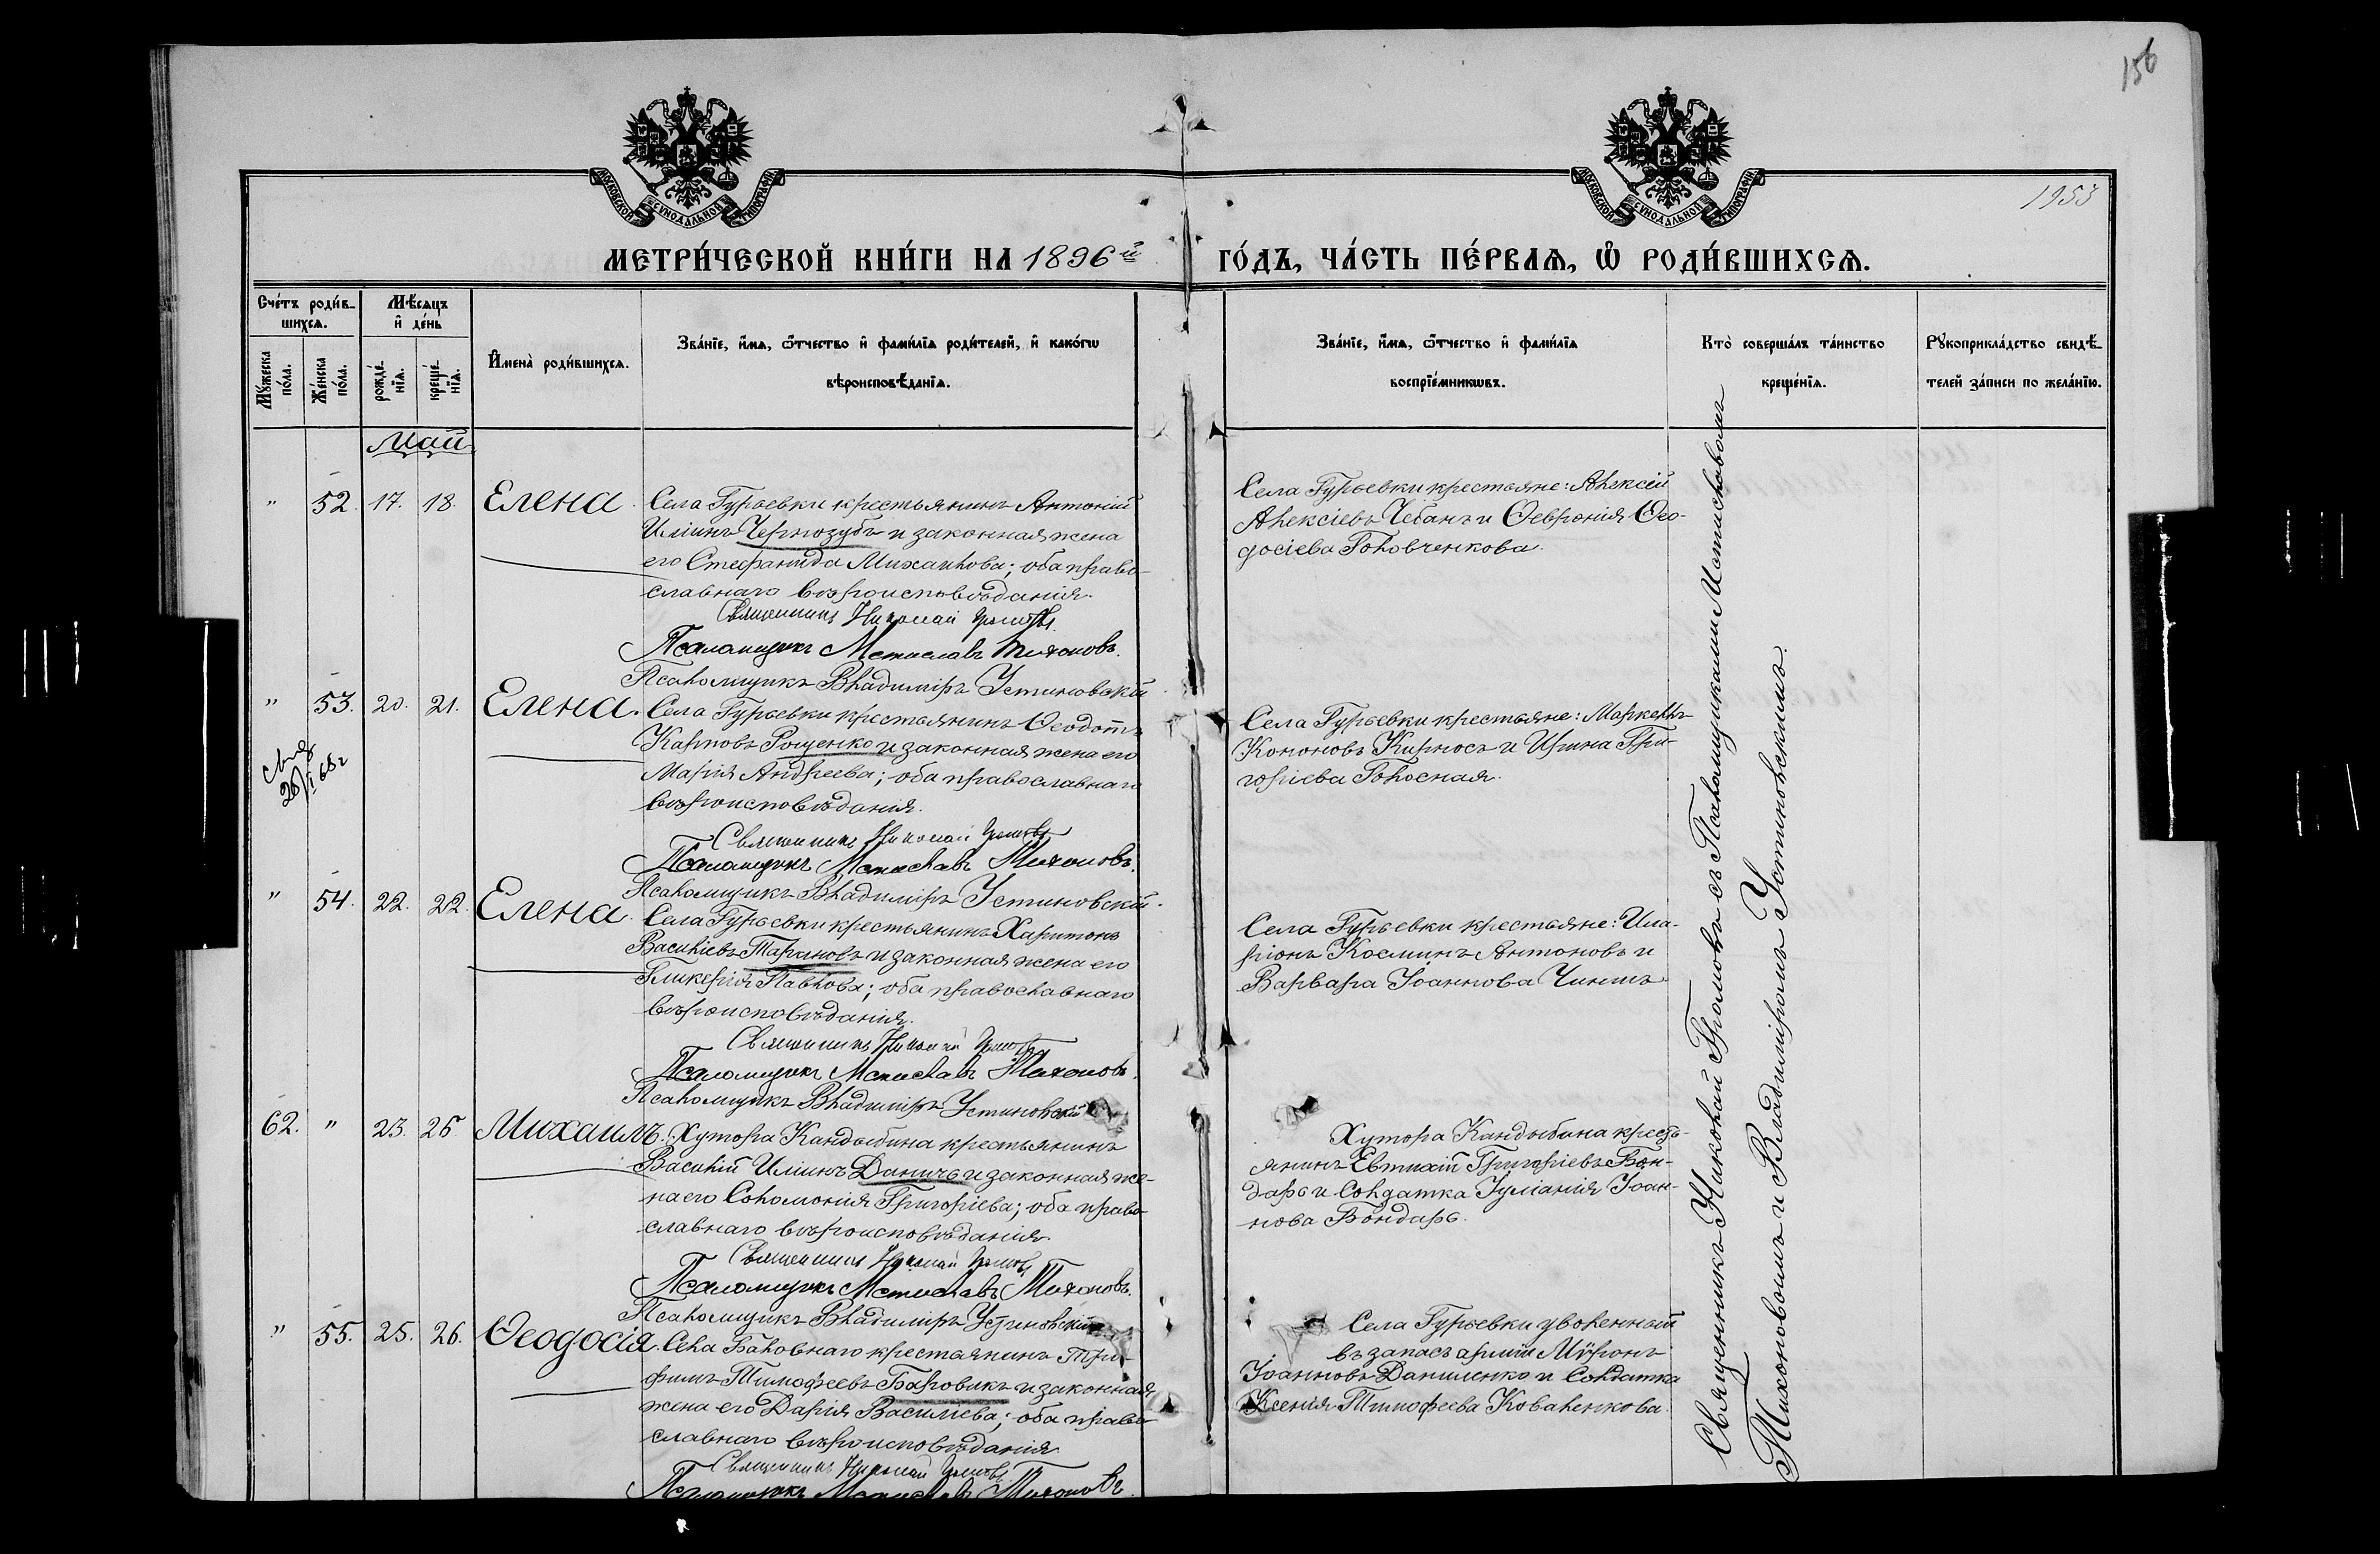 156
1953
МОСКОВСКОЙ СѴНОДАЛЬНОЙ ТИПОГРАФІИ
МОСКОВСКОЙ СѴНОДАЛЬНОЙ ТИПОГРАФІИ
МЕТРИ́ЧЕСКОЙ КНИ́ГИ НА 1896й ГО́ДЪ, ЧА́СТЬ ПЕ́РВАѦ, Ѡ҆ РОДИ́ВШИХСѦ.
Сче́тъ роди́вшихсѧ.
Мꙋ́жеска по́ла.
Же́нска по́ла.
Мѣ́сѧцъ и҆ де́нь
рожде́нїѧ.
креще́нїѧ.
И҆мена̀ роди́вшихсѧ.
Зва́нїе, и҆́мѧ, ѻ҆́тчество и҆ фами́лїѧ роди́телей, и҆ како́гѡ
вѣроисповѣ́данїѧ.
Зва́нїе, и҆́мѧ, ѻ҆́тчество и҆ фами́лїѧ
воспрїе́мникѡвъ.
Кто̀ соверша́лъ та́инство
креще́нїѧ.
Рꙋкоприкла́дство свидѣ́-
телей за́писи по жела́нїю.
Май
" 52. 17. 18. Елена.
Села Гурьевки крестьянинъ Антоній
Иліинъ Чернозубъ и законная жена
его Стефанида Михаилова; оба право-
славнаго вѣроисповѣданія.
Священникъ Николай Громовъ
Псаломщикъ Мстиславъ Тихоновъ.
Псаломщикъ Владиміръ Устиновскій
Села Гурьевки крестьяне: Алексій
Алексіевъ Чебанъ и Ѳевронія Ѳео-
досіева Головченкова.
" 53. 20. 21. Елена.
Села Гурьевки крестьянинъ Ѳеодотъ
Карповъ Рощенко и законная жена его
Марія Андреева; оба православнаго
вѣроисповѣданія.
Священникъ Николай Громовъ
Псаломщикъ Мстиславъ Тихоновъ.
Псаломщикъ Владиміръ Устиновскій.
Села Гурьевки крестьяне: Маркеллъ
Кононовъ Кирносъ и Ирина Гри-
горіева Голосная.
" 54. 22. 22. Елена.
Села Гурьевки крестьянинъ Харитонъ
Василіевъ Тарановъ и законная жена его
Гликерія Павлова; оба православнаго
вѣроисповѣданія.
Священникъ Николай Громовъ
Псаломщикъ Мстиславъ Тихоновъ.
Псаломщикъ Владиміръ Устиновскій
Села Гурьевки крестьяне: Ила-
ріонъ Косминъ Антоновъ и
Варвара Іоаннова Чинишъ
62. " 23. 25. Михаилъ.
Хутора Кандыбина крестьянинъ
Василій Иліинъ Даничъ и законная же-
на его Соломонія Григоріева; оба право-
славнаго вѣроисповѣданія.
Священникъ Николай Громовъ
Псаломщикъ Мстиславъ Тихоновъ.
Псаломщикъ Владиміръ Устиновскій
Хутора Кандыбина кресть-
янинъ Евтихій Григоріевъ Бон-
дарь и солдатка Іуліанія Іоан-
нова Бондарь.
" 55. 25. 26. Ѳеодосія.
Села Баловнаго крестьянинъ Три-
фимъ Тимофеевъ Боровикъ и законная
жена его Дарія Василіева; оба право-
славнаго вѣроисповѣданія
Священникъ Николай Громовъ
Псаломщикъ Мстиславъ Тихоновъ
Села Гурьевки уволенный
въ запасъ арміи Мѵронъ
Іоанновъ Даниленко и солдатка
Ксенія Тимофеева Коваленкова.
Священникъ Николай Громовъ съ Псаломщиками Мстиславомъ
Тихоновымъ и Владиміромъ Устиновскимъ.